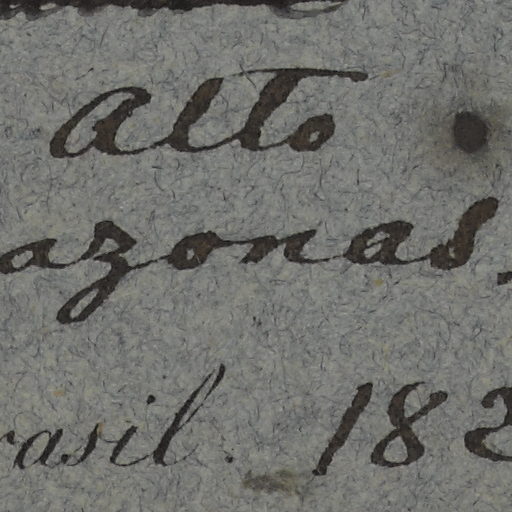 Alto
azonas.
rasil. 182